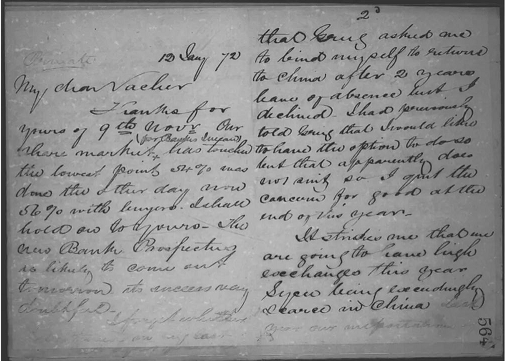 Private
12 Jany 72
My dear Vacher
Thanks for
yours of 9th Novr Our
share market, has touched
(for Banks & Insurance)
the lowest point 54% was
done the other day now
56% with buyers. I shall
hold on to yours - The
new Bank Prospectus
is likely to come out
tomorrow its success very
doubtful -
2d
that asked me
to bind myself to return
to China after 2 years
leave of absence but I
declined. I had previously
told that I would like
to have the option to do so
but that apparently does
not suit so I quit the
concern for good at the
end of this year -
It strikes me that we
are going to have high
exchanges this year
Sycee being exceedingly
scarce in China
our
564